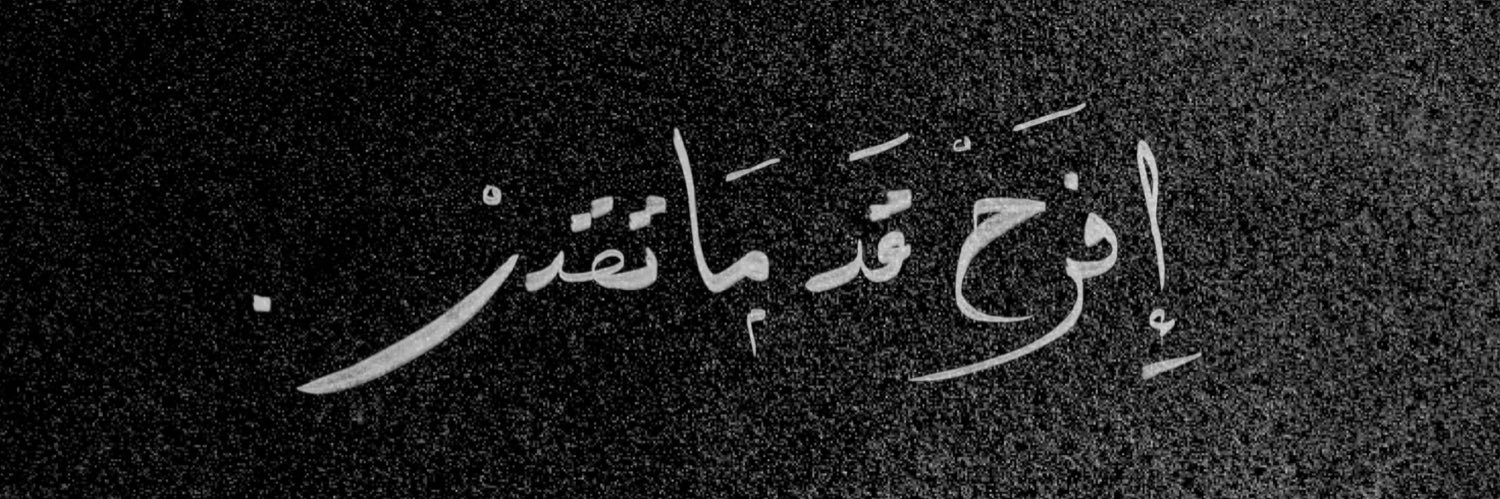 إِفرَحْ قَد مَا تقدرْ .